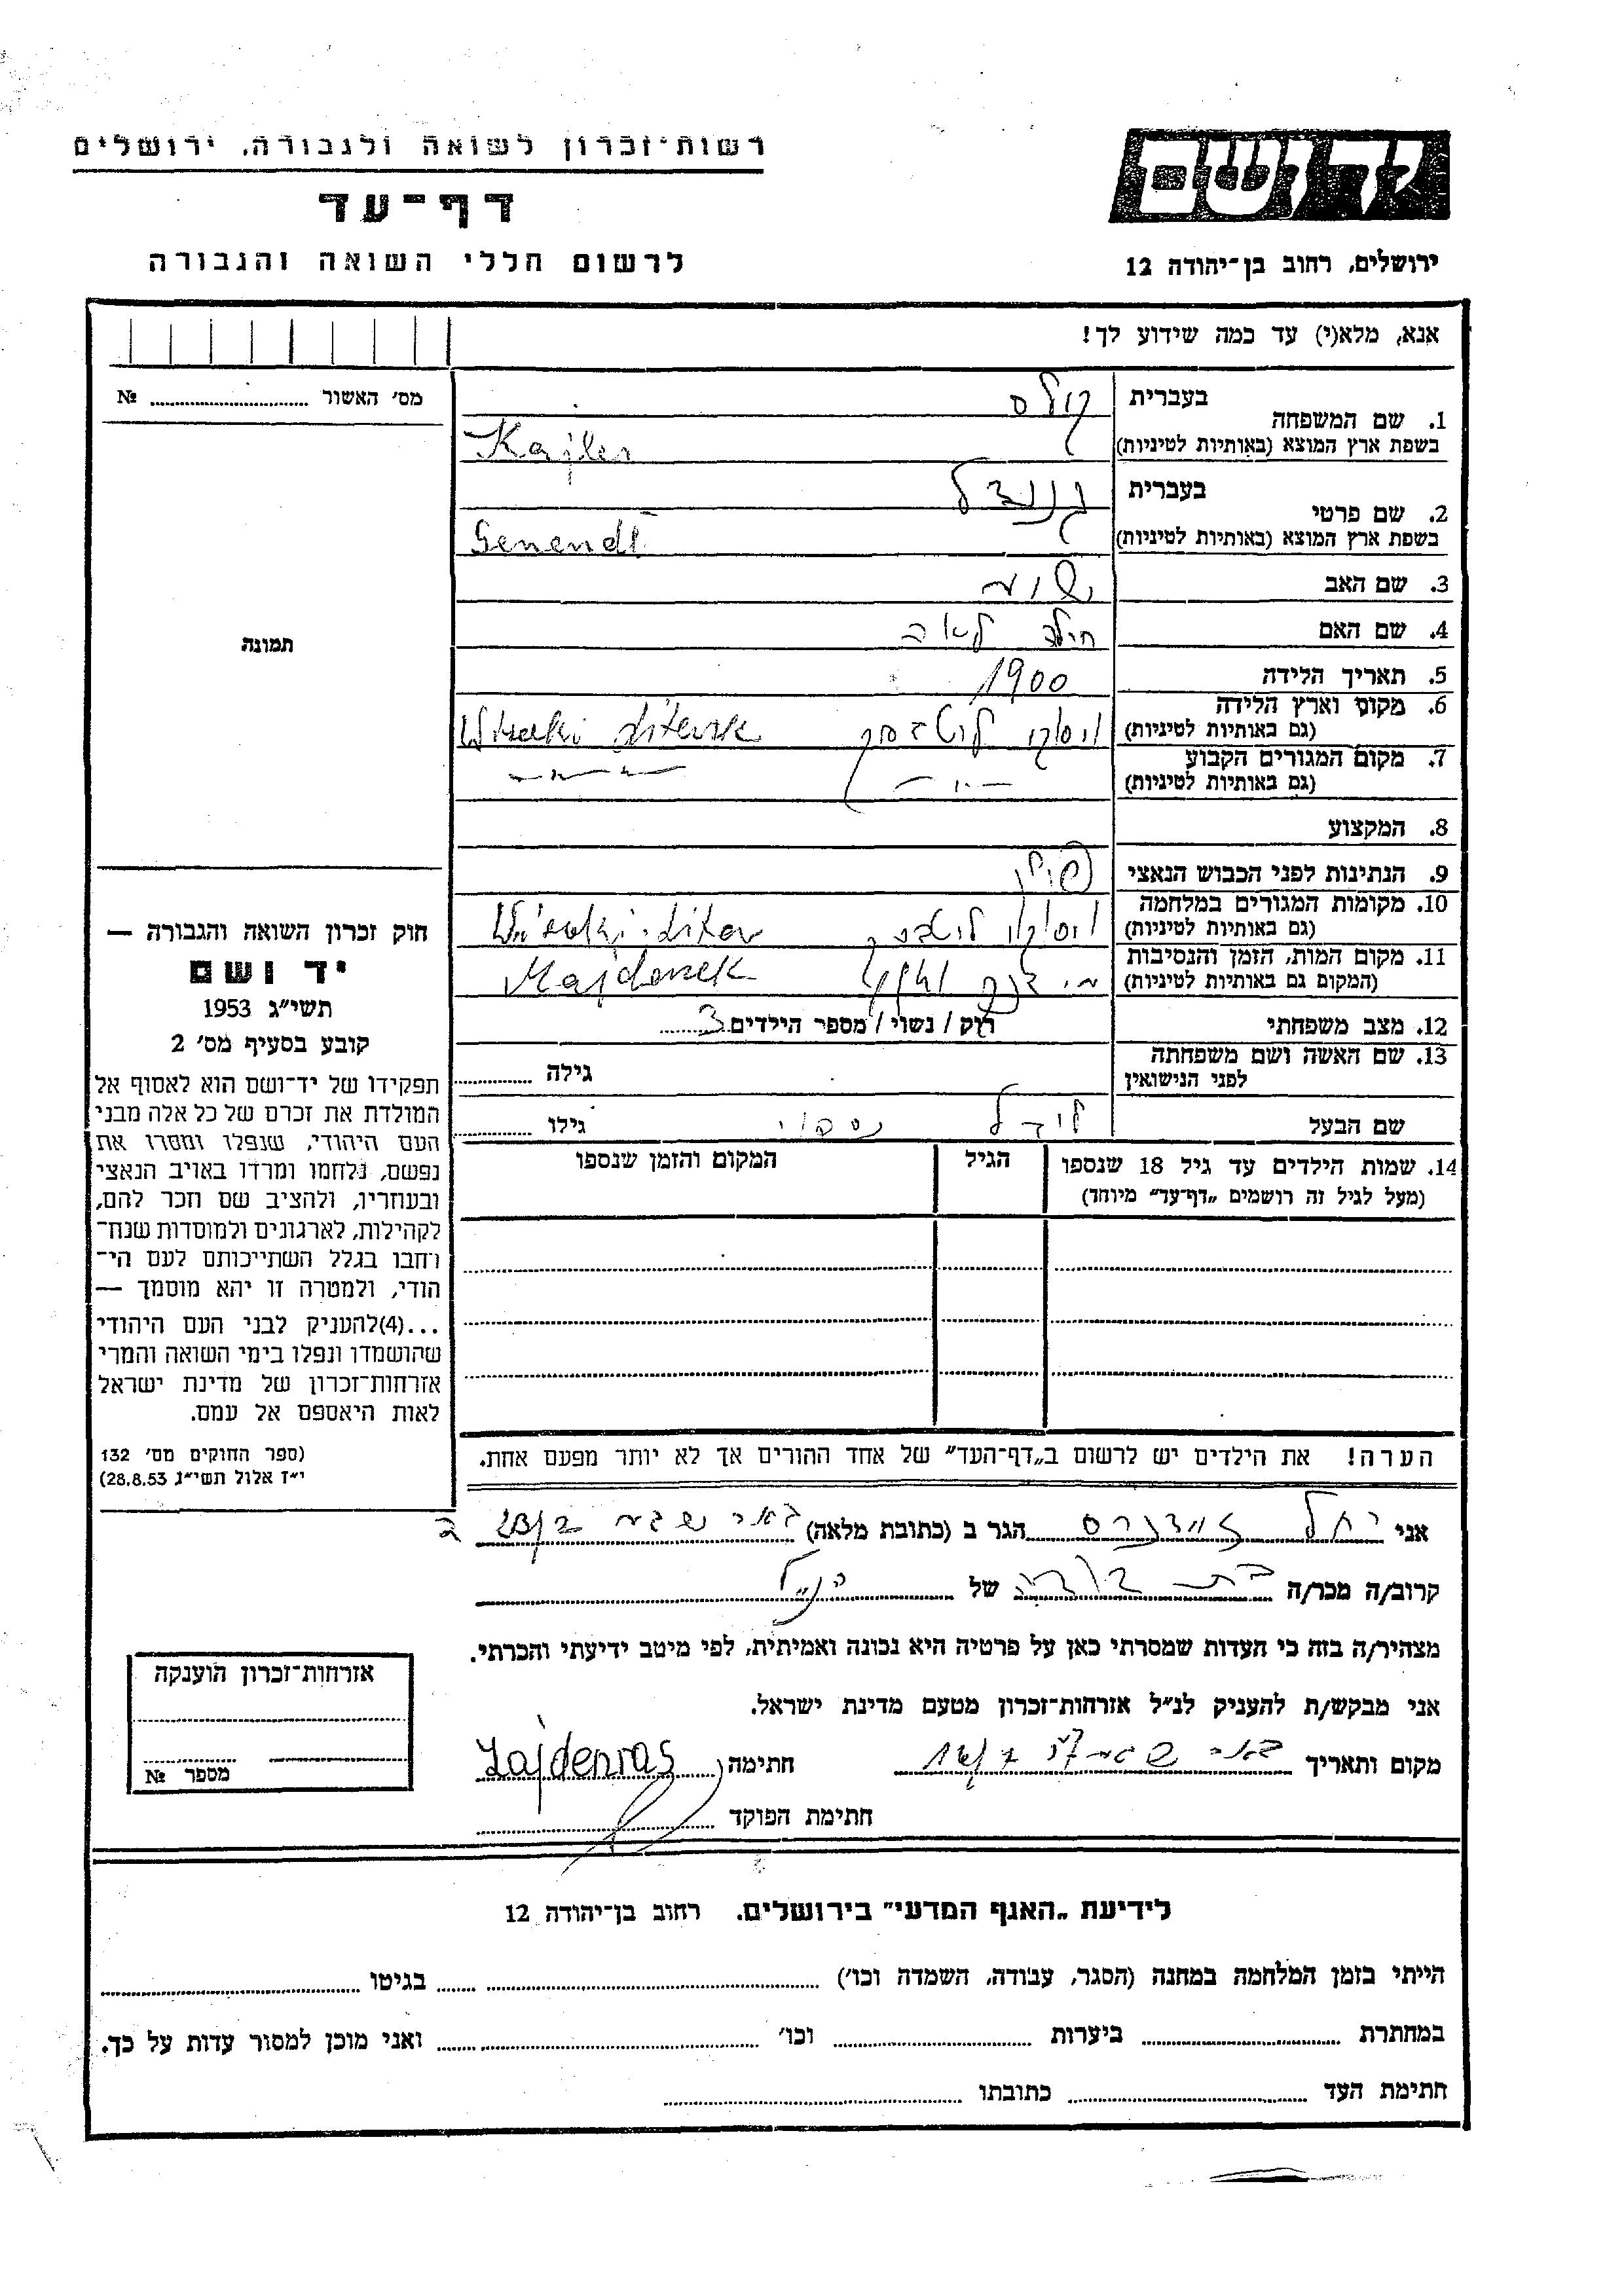 רשות־זכרון לשואה ולגבורה, ירושלים
דף־עד
לרשום חללי השואה והגבורה
יד ושם
ירושלים, רחוב בן־יהודה 12
אנא, מלא(י) עד כמה שידוע לך!
מס' האשור № 
תמונה
1. שם המשפחה
בעברית
בשפת ארץ המוצא (באותיות לטיניות) Kajler
2. שם פרטי
בעברית גננדל
בשפת ארץ המוצא (באותיות לטיניות) Genendl
3. שם האב
4. שם האם חיה לאה
5. תאריך הלידה 1900
6. מקום וארץ הלידה
(גם באותיות לטיניות)
7. מקום המגורים הקבוע
(גם באותיות לטיניות)
8. המקצוע
9. הנתינות לפני הכבוש הנאצי פולין
10. מקומות המגורים במלחמה
(גם באותיות לטיניות)
11. מקום המות, הזמן והנסיבות
(המקום גם באותיות לטיניות) Majdanek
12. מצב משפחתי רוק / נשוי / מספר הילדים 3
13. שם האשה ושם משפחתה
לפני הנישואין
גילה
שם הבעל יודל נספוי
גילו
14. שמות הילדים עד גיל 18 שנספו
(מעל לגיל זה רושמים „דף־עד” מיוחד)
הגיל
המקום והזמן שנספו
הערה! את הילדים יש לרשום ב„דף־העד” של אחד ההורים אך לא יותר מפעם אחת.
חוק זכרון השואה והגבורה —
יד ושם
תשי״ג 1953
קובע בסעיף מס' 2
תפקידו של יד־ושם הוא לאסוף אל
המולדת את זכרם של כל אלה מבני
העם היהודי, שנפלו ומסרו את
נפשם, נלחמו ומרדו באויב הנאצי
ובעוזריו, ולהציב שם וזכר להם,
לקהילות, לארגונים ולמוסדות שנח־
רבו בגלל השתייכותם לעם הי־
הודי, ולמטרה זו יהא מוסמך —
...(4)להעניק לבני העם היהודי
שהושמדו ונפלו בימי השואה והמרי
אזרחות־זכרון של מדינת ישראל
לאות היאספם אל עמם.
(ספר החוקים מס' 132
י״ז אלול תשי״ג 28.8.53)
אני רחל זיידנרס הגר ב (כתובת מלאה) באר שבע
קרוב/ה מכר/ה בת דודה של הנ״ל
מצהיר/ה בזה כי העדות שמסרתי כאן על פרטיה היא נכונה ואמיתית, לפי מיטב ידיעתי והכרתי.
אני מבקש/ת להעניק לנ״ל אזרחות־זכרון מטעם מדינת ישראל.
מקום ותאריך באר שבע
חתימה Zajdenras
חתימת הפוקד
אזרחות־זכרון הוענקה
מספר №
לידיעת „האגף המדעי” בירושלים. רחוב בן־יהודה 12
הייתי בזמן המלחמה במחנה (הסגר, עבודה, השמדה וכו') בגיטו
במחתרת ביערות וכו' ואני מוכן למסור עדות על כך.
חתימת העד כתובתו